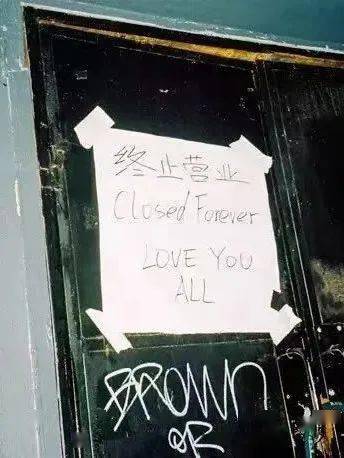 终止营业
Closed Forever
LOVE YOU
ALL
BROWN